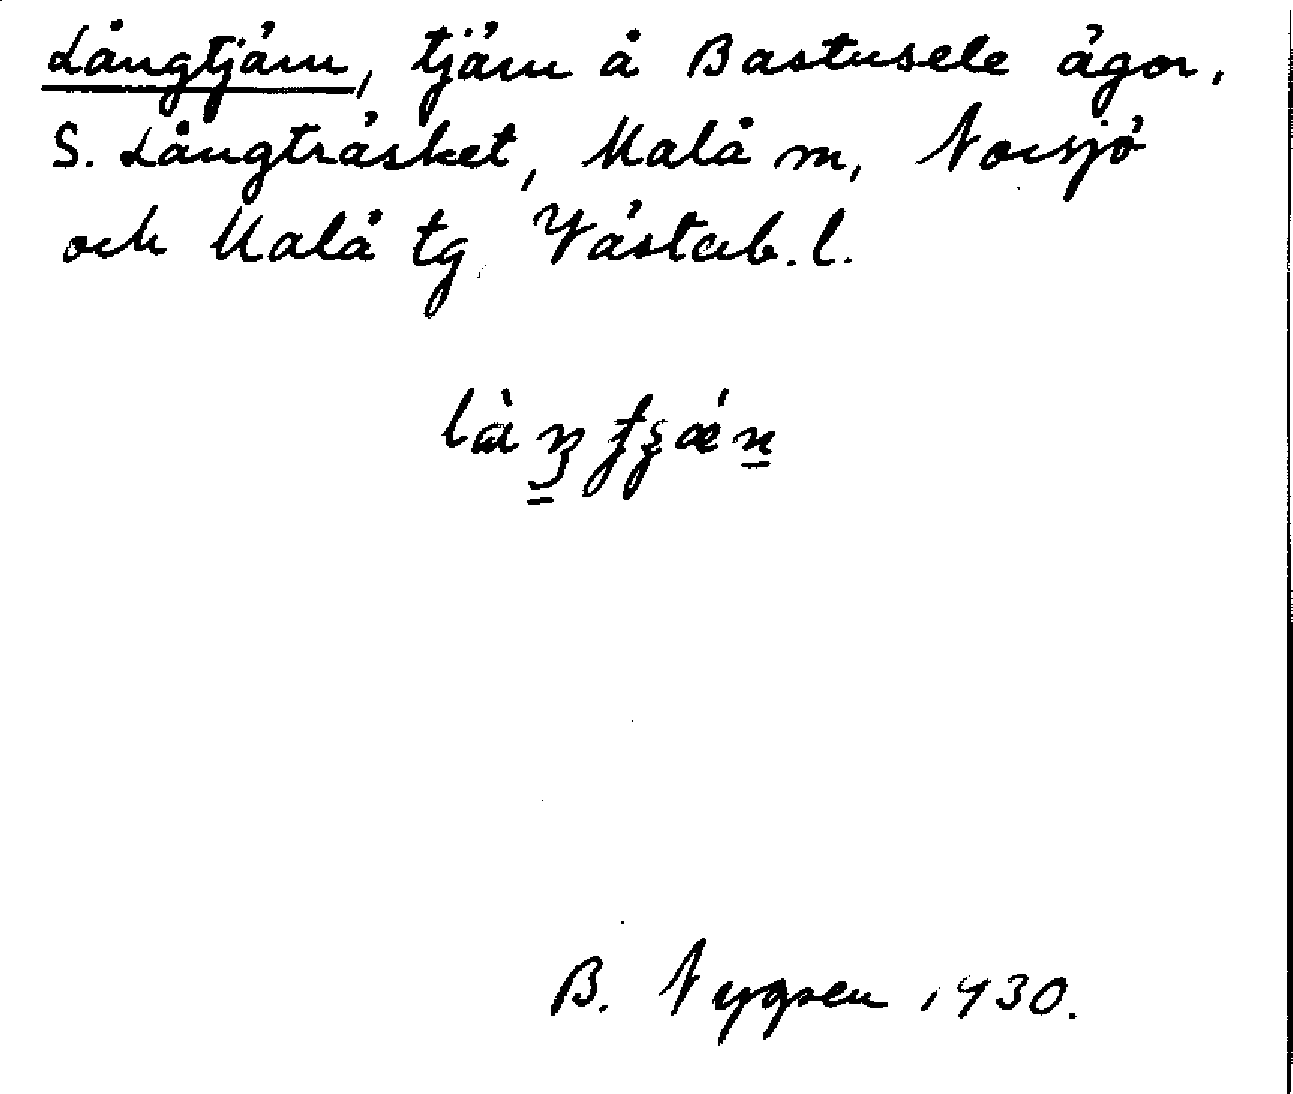 Långtjärn, tjärn å Bastusele ägor,
S. Långträsket, Malå sn, Norsjö
och Malå tg Västerb. l.
B. Nygren 1930.